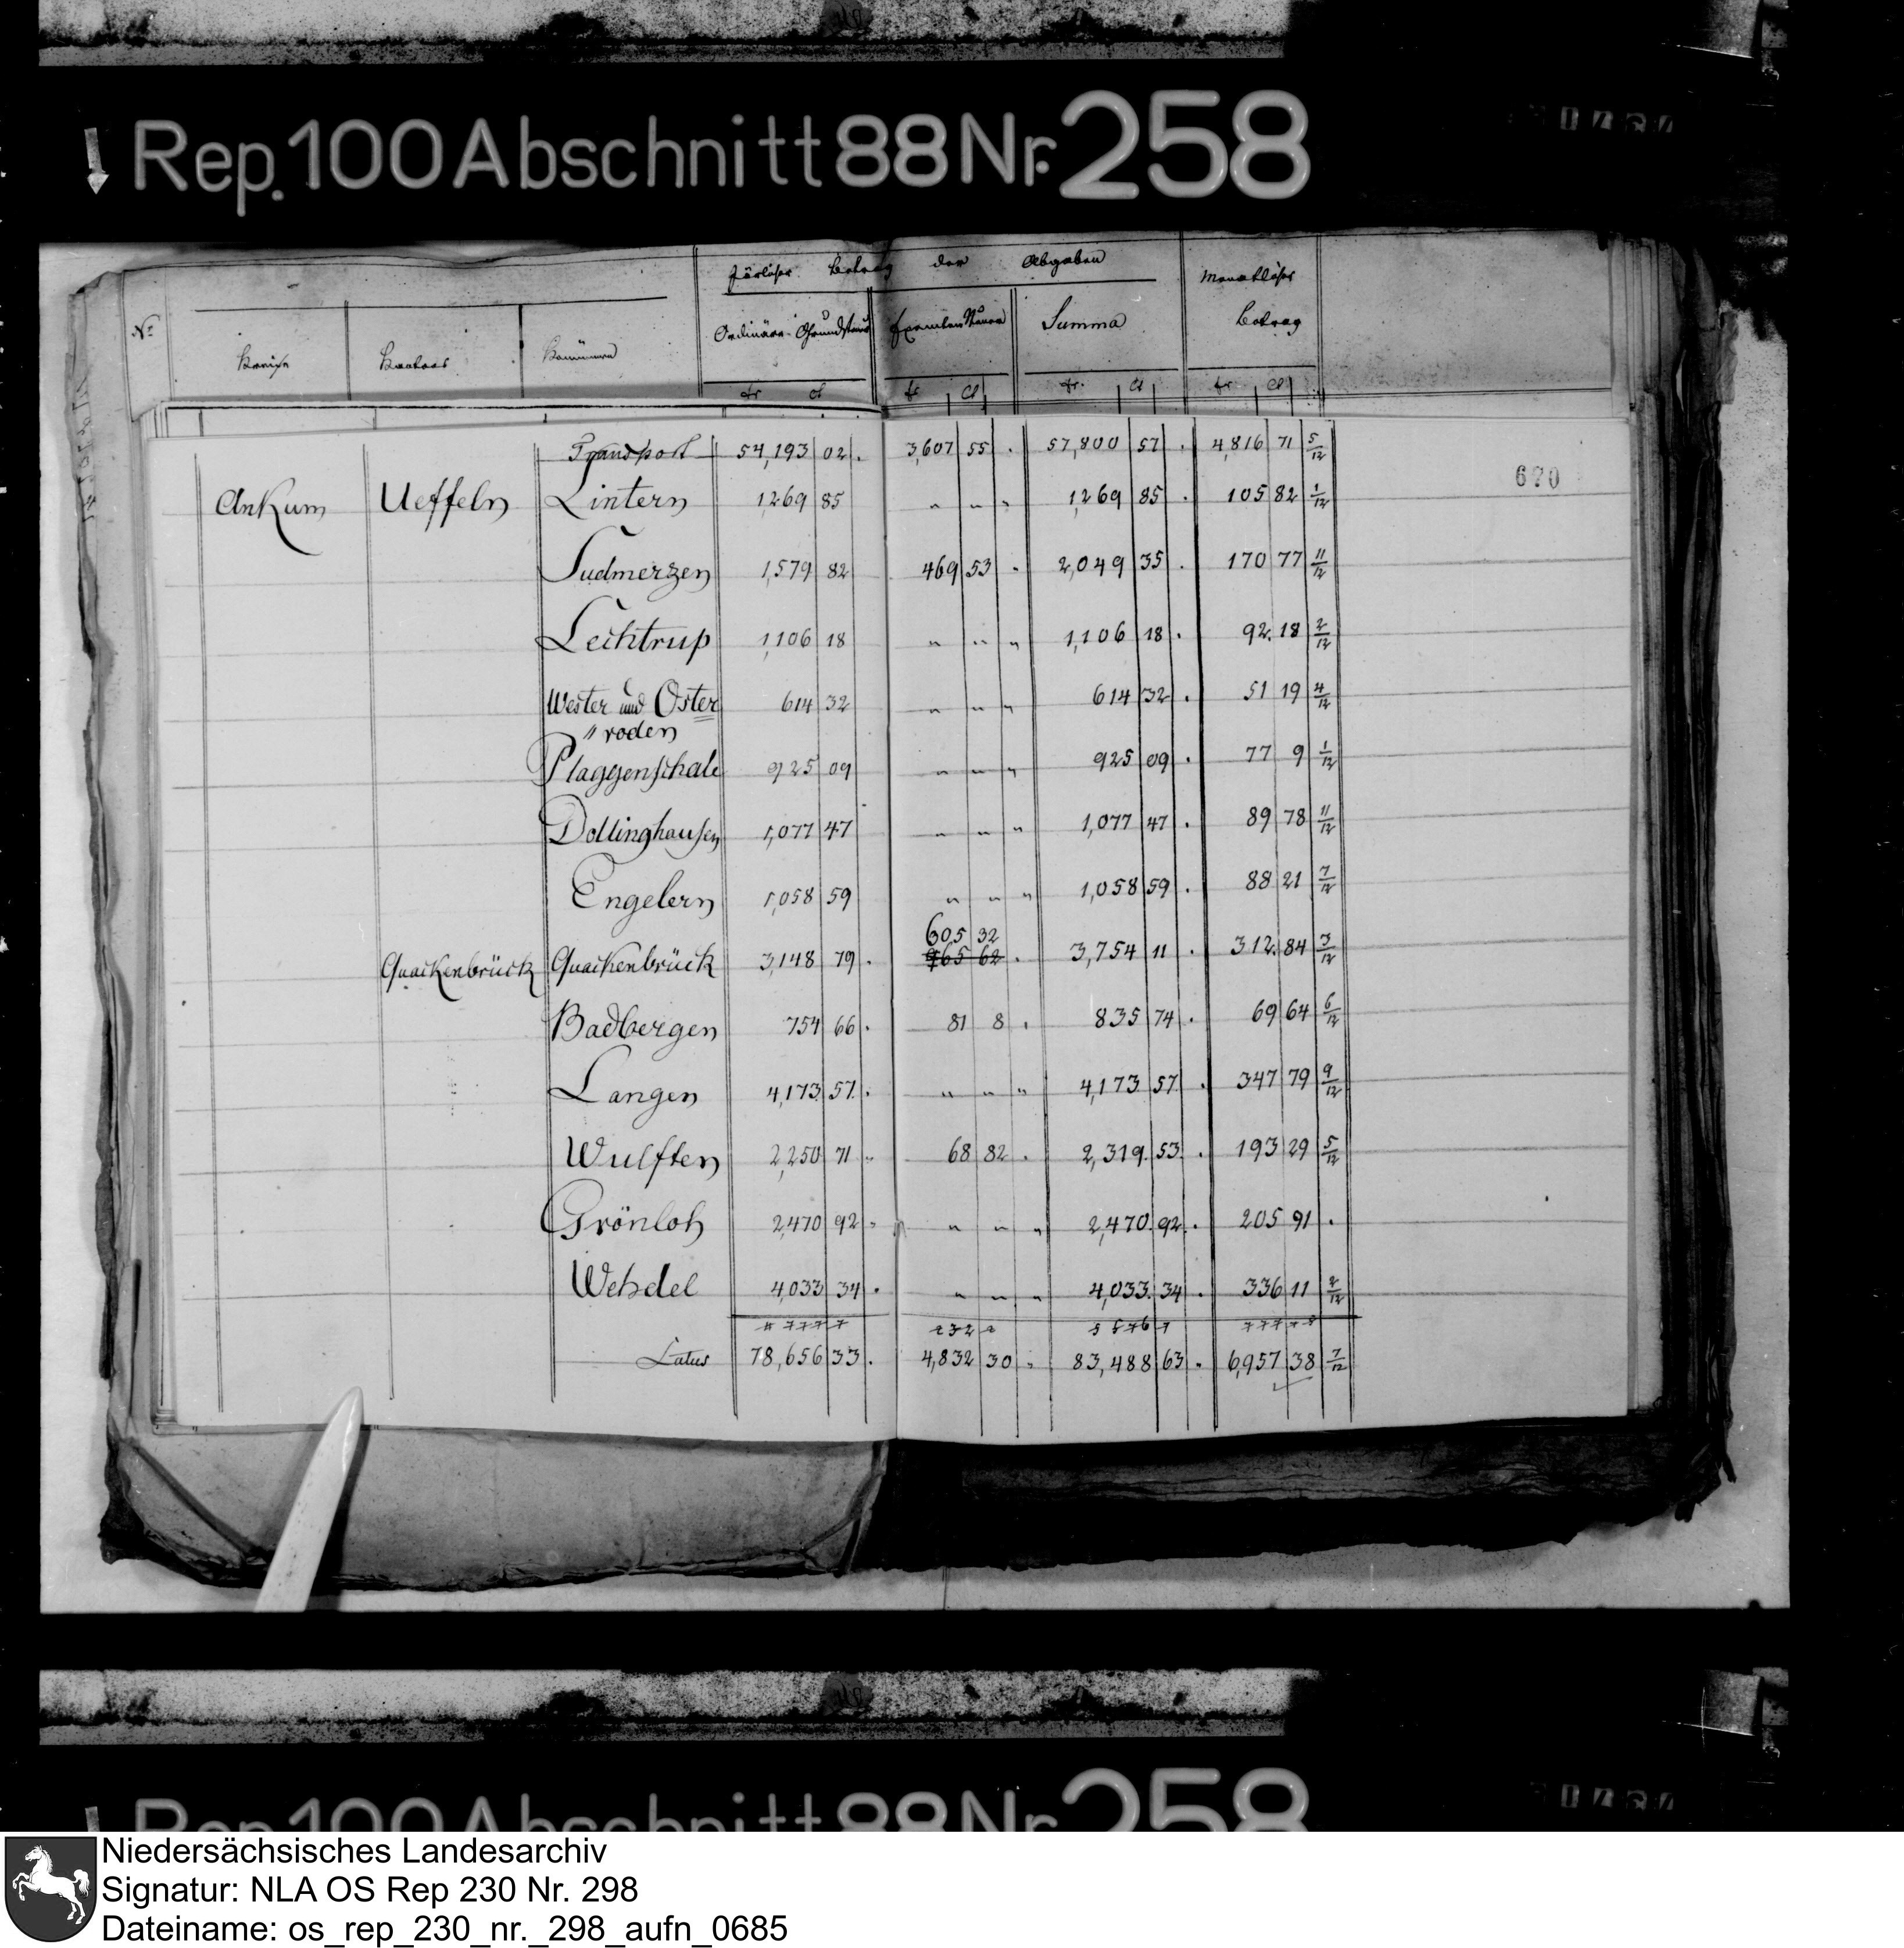 Rep. 100 Abschnitt 88 Nr. 258
Järlicher Betrag der Abgaben Monatlicher
Nº Kreise Kantons Kommunen Ordinäre Grundsteuer Exemten Steuer Summa Betrag
fr cl fr cl fr. cl fr cl
Transport 54,193 02. 3,607 55 . 57,800 57 . 4,816 71 5/12
670
Ankum Ueffeln Lintern 1,269 85 " " " 1,269 85 . 105 82 1/12
Sudmerzen 1,579 82 469 53 . 2,049 35 . 170 77 11/12
Lechtrup 1,106 18 " " " 1,106 18 . 92. 18 2/12
Wester und Oster 614 32 " " " 614 32 . 51 19 4/12
" roden
Plaggenschale 925 09 " " " 925 09 . 77 9 1/12
Dollinghausen 1,077 47 " " " 1,077 47 . 89 78 11/12
Engelern 1,058 59 " " " 1,058 59 . 88 21 7/12
605 32
Quackenbrück Quackenbrück 3,148 79 . 765 62 . 3,754 11 . 312. 84 3/12
Badbergen 754 66 . 81 8 . 835 74 . 69 64 6/12
Langen 4,173 57. . " " " 4,173 57. . 347 79 9/12
Wulften 2,250 71 " 68 82 . 2,319. 53. . 193 29 5/12
Grönloh 2,470 92 " " " " 2,470. 92. . 205 91 .
Wehdel 4,033 34 . " " " 4,033. 34 . 336 11 2/12
Latus 78,656 33. 4,832 30 . 83,488 63 . 6,957 38 7/12
Rep. 100 Abschnitt 88 Nr. 258
Niedersächsisches Landesarchiv
Signatur: NLA OS Rep 230 Nr. 298
Dateiname: os_rep_230_nr._298_aufn_0685